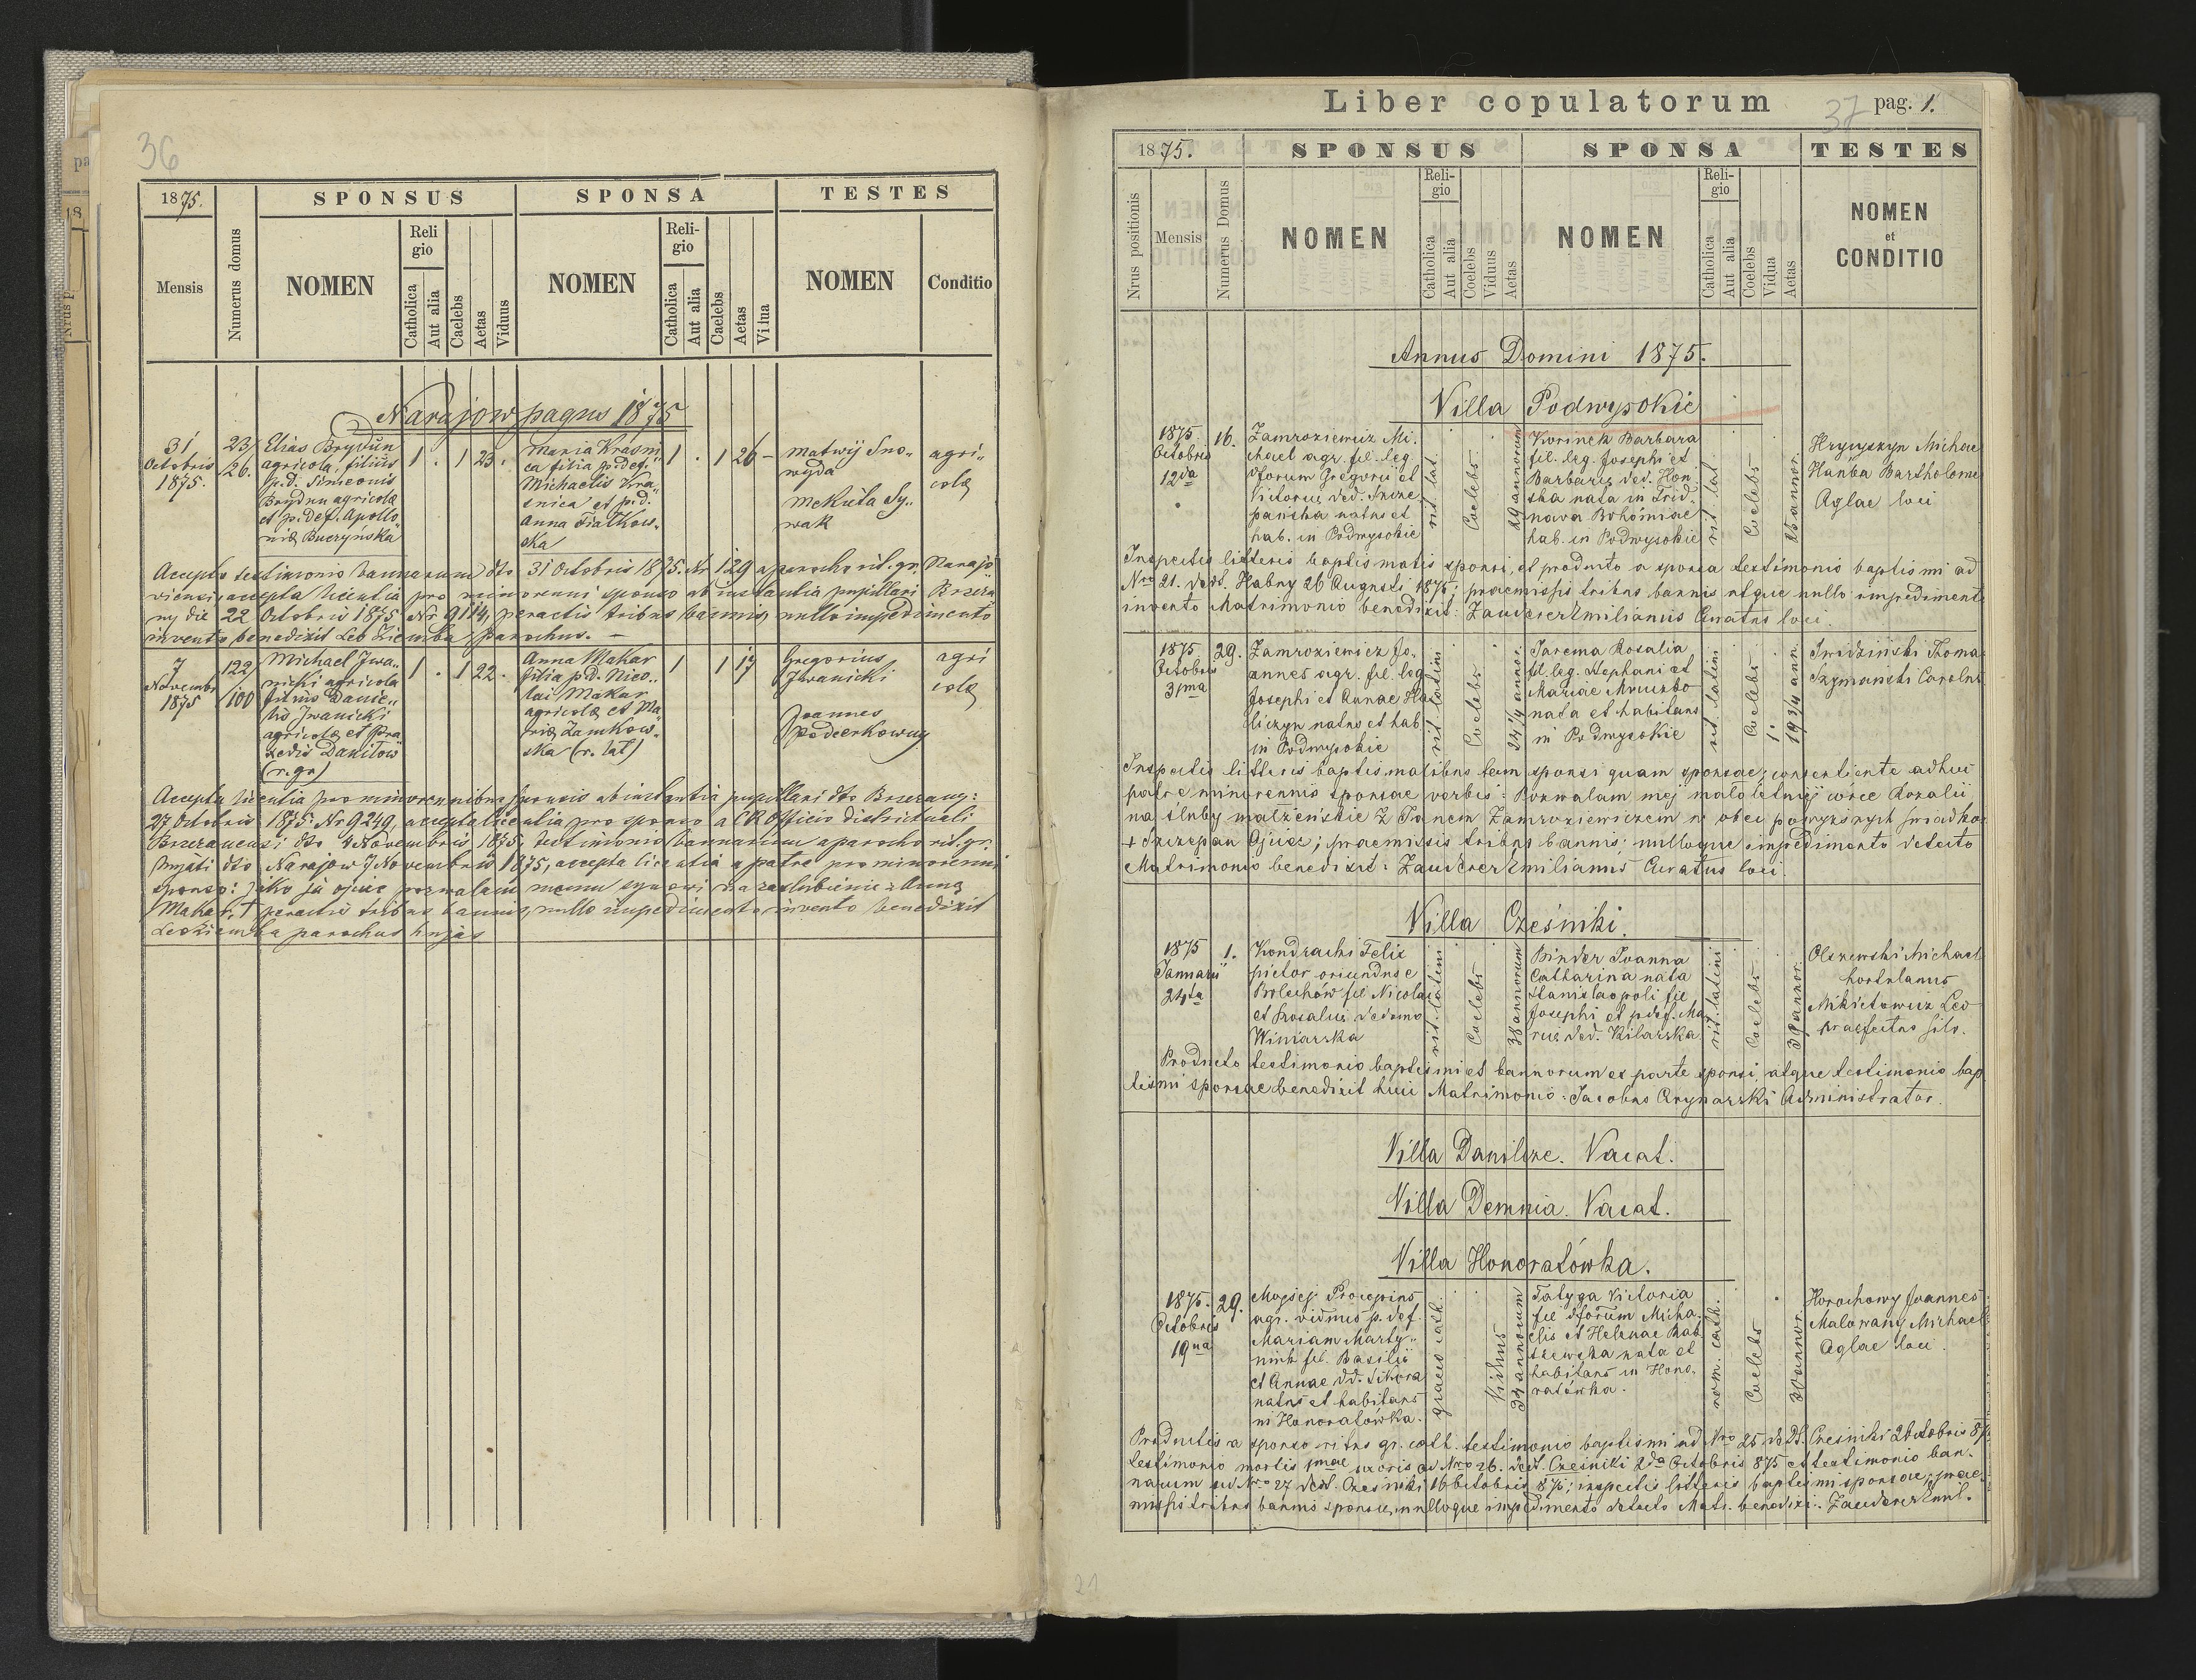 36
1875.
SPONSUS
SPONSA
TESTES
Mensis
Numerus domus
NOMEN
Reli
gio
Catholica
Aut alia
Caelebs
Aetas
Viduus
NOMEN
Reli-
gio
Catholica
Aut alia
Caelebs
Aetas
Vi lua
NOMEN
Conditio
Narajow pagus 1875
31
Octobris
1875.
23/
26.
Elias Brydun
agricola, filius
p.d. Simeonis
Brydun agricolæ
et p. def. Apollo„
niæ Buczynska
1 . 1 23 .
Maria Krasni„
ca filia p. def.
Michaelis Kra„
snica et p.d.
Anna Fiatkow„
ska
1 . 1 26 –
Matwij Sno„
wyda
Mekuta Sy„
wak
agri„
colæ
Accepto testimonio bannarum dto 31 Octobris 1875. Nr 129 a parocho rit. gr. Narajo„
viensi, accepta licentia pro minorenni sponso ab instantia pupillari Brzeża„
ny die 22 Octobris 1875 Nr 9114, peractis tribus bannis, nullo impedimento
invento benedixit Leo Ziemba parochus. –
7
Novembr
1875
122/
100
Michael Iwa„
nicki agricola
filius Danie„
lis Iwanicki
agricolæ et Pra„
xedis Danilow
(r. gr)
1 . 1 22 .
Anna Makar
filia p.d. Nico„
lai Makar
agricolæ et Ma„
riæ Zamkow„
ska (r. lat)
1 1 17
Gregorius
Iwanicki
Joannes
Podcerkowny
agri
colæ
Accepta licentia pro minorennibus sponsis ab instantia pupillari dto Brzezany:
27 Octobris 1875. Nr 9249, accepta licentia pro sponso a CR Officio districtuali
Brzezanensi dto 4 Novembris 1875, testimonio bannarum a parocho rit. gr.
dto Narajow 7 Novembris 1875, accepta licentia a patre pro minorenni
sponso: jako ja ojciec pozwalam memu synowi na zaslubienie z Anną
Makar, † peractis tribus bannis, nullo impedimento invento benedixit
Leo Ziemba parochus hujas
Liber copulatorum
37
pag. 1.
1875.
SPONSUS
SPONSA
TESTES
Nrus positionis
Mensis
Numerus Domus
NOMEN
Reli-
gio
Catholica
Aut alia
Coelebs
Viduus
Aetas
NOMEN
Reli-
gio
Catholica
Aut alia
Coelebs
Vidua
Aetas
NOMEN
et
CONDITIO
Annus Domini 1875.
Villa Podwysokie
1875.
Octobris
12da
16.
Zamroziewicz Mi„
chael agr. fil. leg.
dforum Gregorii et
Victoriae ded. Szcze„
pańska natus et
hab. in Podwysokie
rit. lat.
Coelebs
29 annorum
Korinek Barbara
fil. leg. Josephi et
Barbarae ded. Hon„
ska nata in Trid„
nava Bohömiae
hab. in Podwysokie
rit. lat.
Coelebs
25 annor.
Hrycyszyn Michae
Hanba Bartholome
Aglae loci
Inspectis litteris baptismatis sponsi, et producto a sponsa testimonio baptismi ad
Nro 21. dedt. Habry 26 Augusti 1875; praemissis tribus bannis atque nullo impedimento
invento Matrimonio benedixit: Zauderer Emilianus Curatus loci.
1875
Octobris
31ma
29.
Zamroziewicz Jo„
annes agr. fil. leg.
Josephi et Annae Ha„
liczyn natus et hab.
in Podwysokie
rit. latini
Coelebs
24 1/4 annor.
Jarema Rosalia
fil. leg. Stephani et
Mariae
nata et habitans
in Podwysokie
rit. latini
Coelebs
19 3/4 ann.
Swidziński Thoma
Szymański Carolus
Inspectis litteris baptismalibus tam sponsi quam sponsae; consentiente adhuc
patre minorennis sponsae verbis: Pozwalam mej małoletniej córce Rozalii
na śluby małżeńskie z Janem Zamroziewiczem w obec powyższych świadków
+ Szczepan Ojciec; praemissis tribus bannis; nulloque impedimento detecto
Matrimonio benedixit: Zauderer Emilianus Curatus loci.
Villa Cześniki.
1875
Januarii
24ta
1.
Kondracki Felix
pictor oriundus e
Bolechów fil Nicolai
et Rosaliae de domo
Winiarska
rit. latini
Coelebs
38 annorum
Binder Joanna
Catharina nata
Stanislaopoli fil
Josephi et p def. Ma
riae ded. Kilarska.
rit. latini
Coelebs
39 annor.
Olszewski Michael
hortulanus
Mikietowicz Leo
praefectus silv.
Producto testimonio baptismi et bannorum ex parte sponsi, atque testimonio bap
tismi sponsae benedixit huic Matrimonio: Jacobus Administrator.
Villa Danilcze. Vacat.
Villa Demnia. Vacat.
Villa Honoratówka.
1875.
Octobris
19na
29.
Mojsej Procopius
agr. viduus p. def.
Mariam Marty„
niuk fil. Basilii
et Annae dd. Sikora
natus et habitans
in Honoratówka.
graeco cath.
Viduus
34 annorum
Tatyga Victoria
fil dforum Micha„
elis et Helenae Bab„
czewska nata et
habitans in Hono„
ratówka.
rom. cath.
Coelebs
30 annor.
Horochowy Joannes
Malowany Michael
Aglae loci.
Productis a sponso ritus gr. cath. testimonio baptismi ad Nro 25 de Dt. Cześniki 2 Octobris 875
testimonio mortis 1mae uxoris ad Nro 26. dedt. Cześniki 2da Octobris 875 et testimonio ban„
narum ad Nro 27 dedt. Cześniki 16 Octobris 875; inspectis litteris baptismi sponsae; prae„
missis tribus bannis sponsae, nulloque impedimento detecto Matr. benedixi. Zauderer Emil.
21